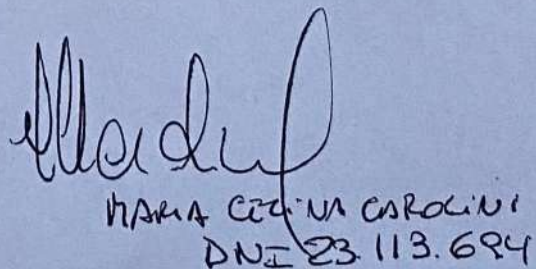 MARIA CECINA CAROLINI
DNI 23.113.694